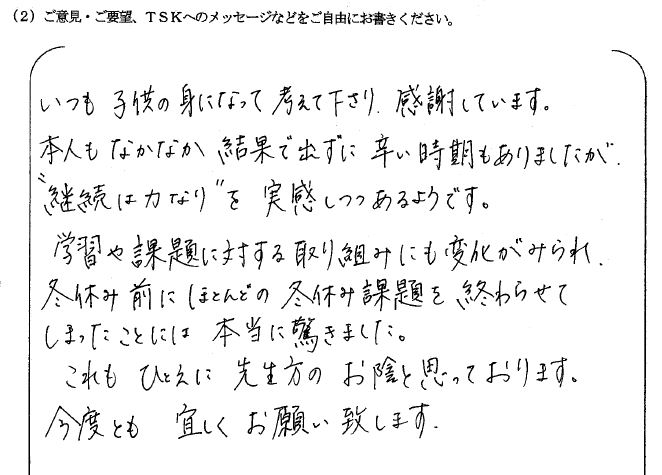 (2) ご意見・ご要望、TSKへのメッセージなどをご自由にお書きください。
いつも 子供の身になって 考えて下さり、感謝しています。
本人も なかなか 結果で出ずに 辛い時期もありましたが、
"継続は力なり"を 実感しつつあるようです。
学習や課題に対する取り組みにも変化がみられ、
冬休み前にほとんどの 冬休み課題を 終わらせて
しまったことには 本当に驚きました。
これも ひとえに 先生方の お陰と思っております。
今度とも 宜しく お願い致します.